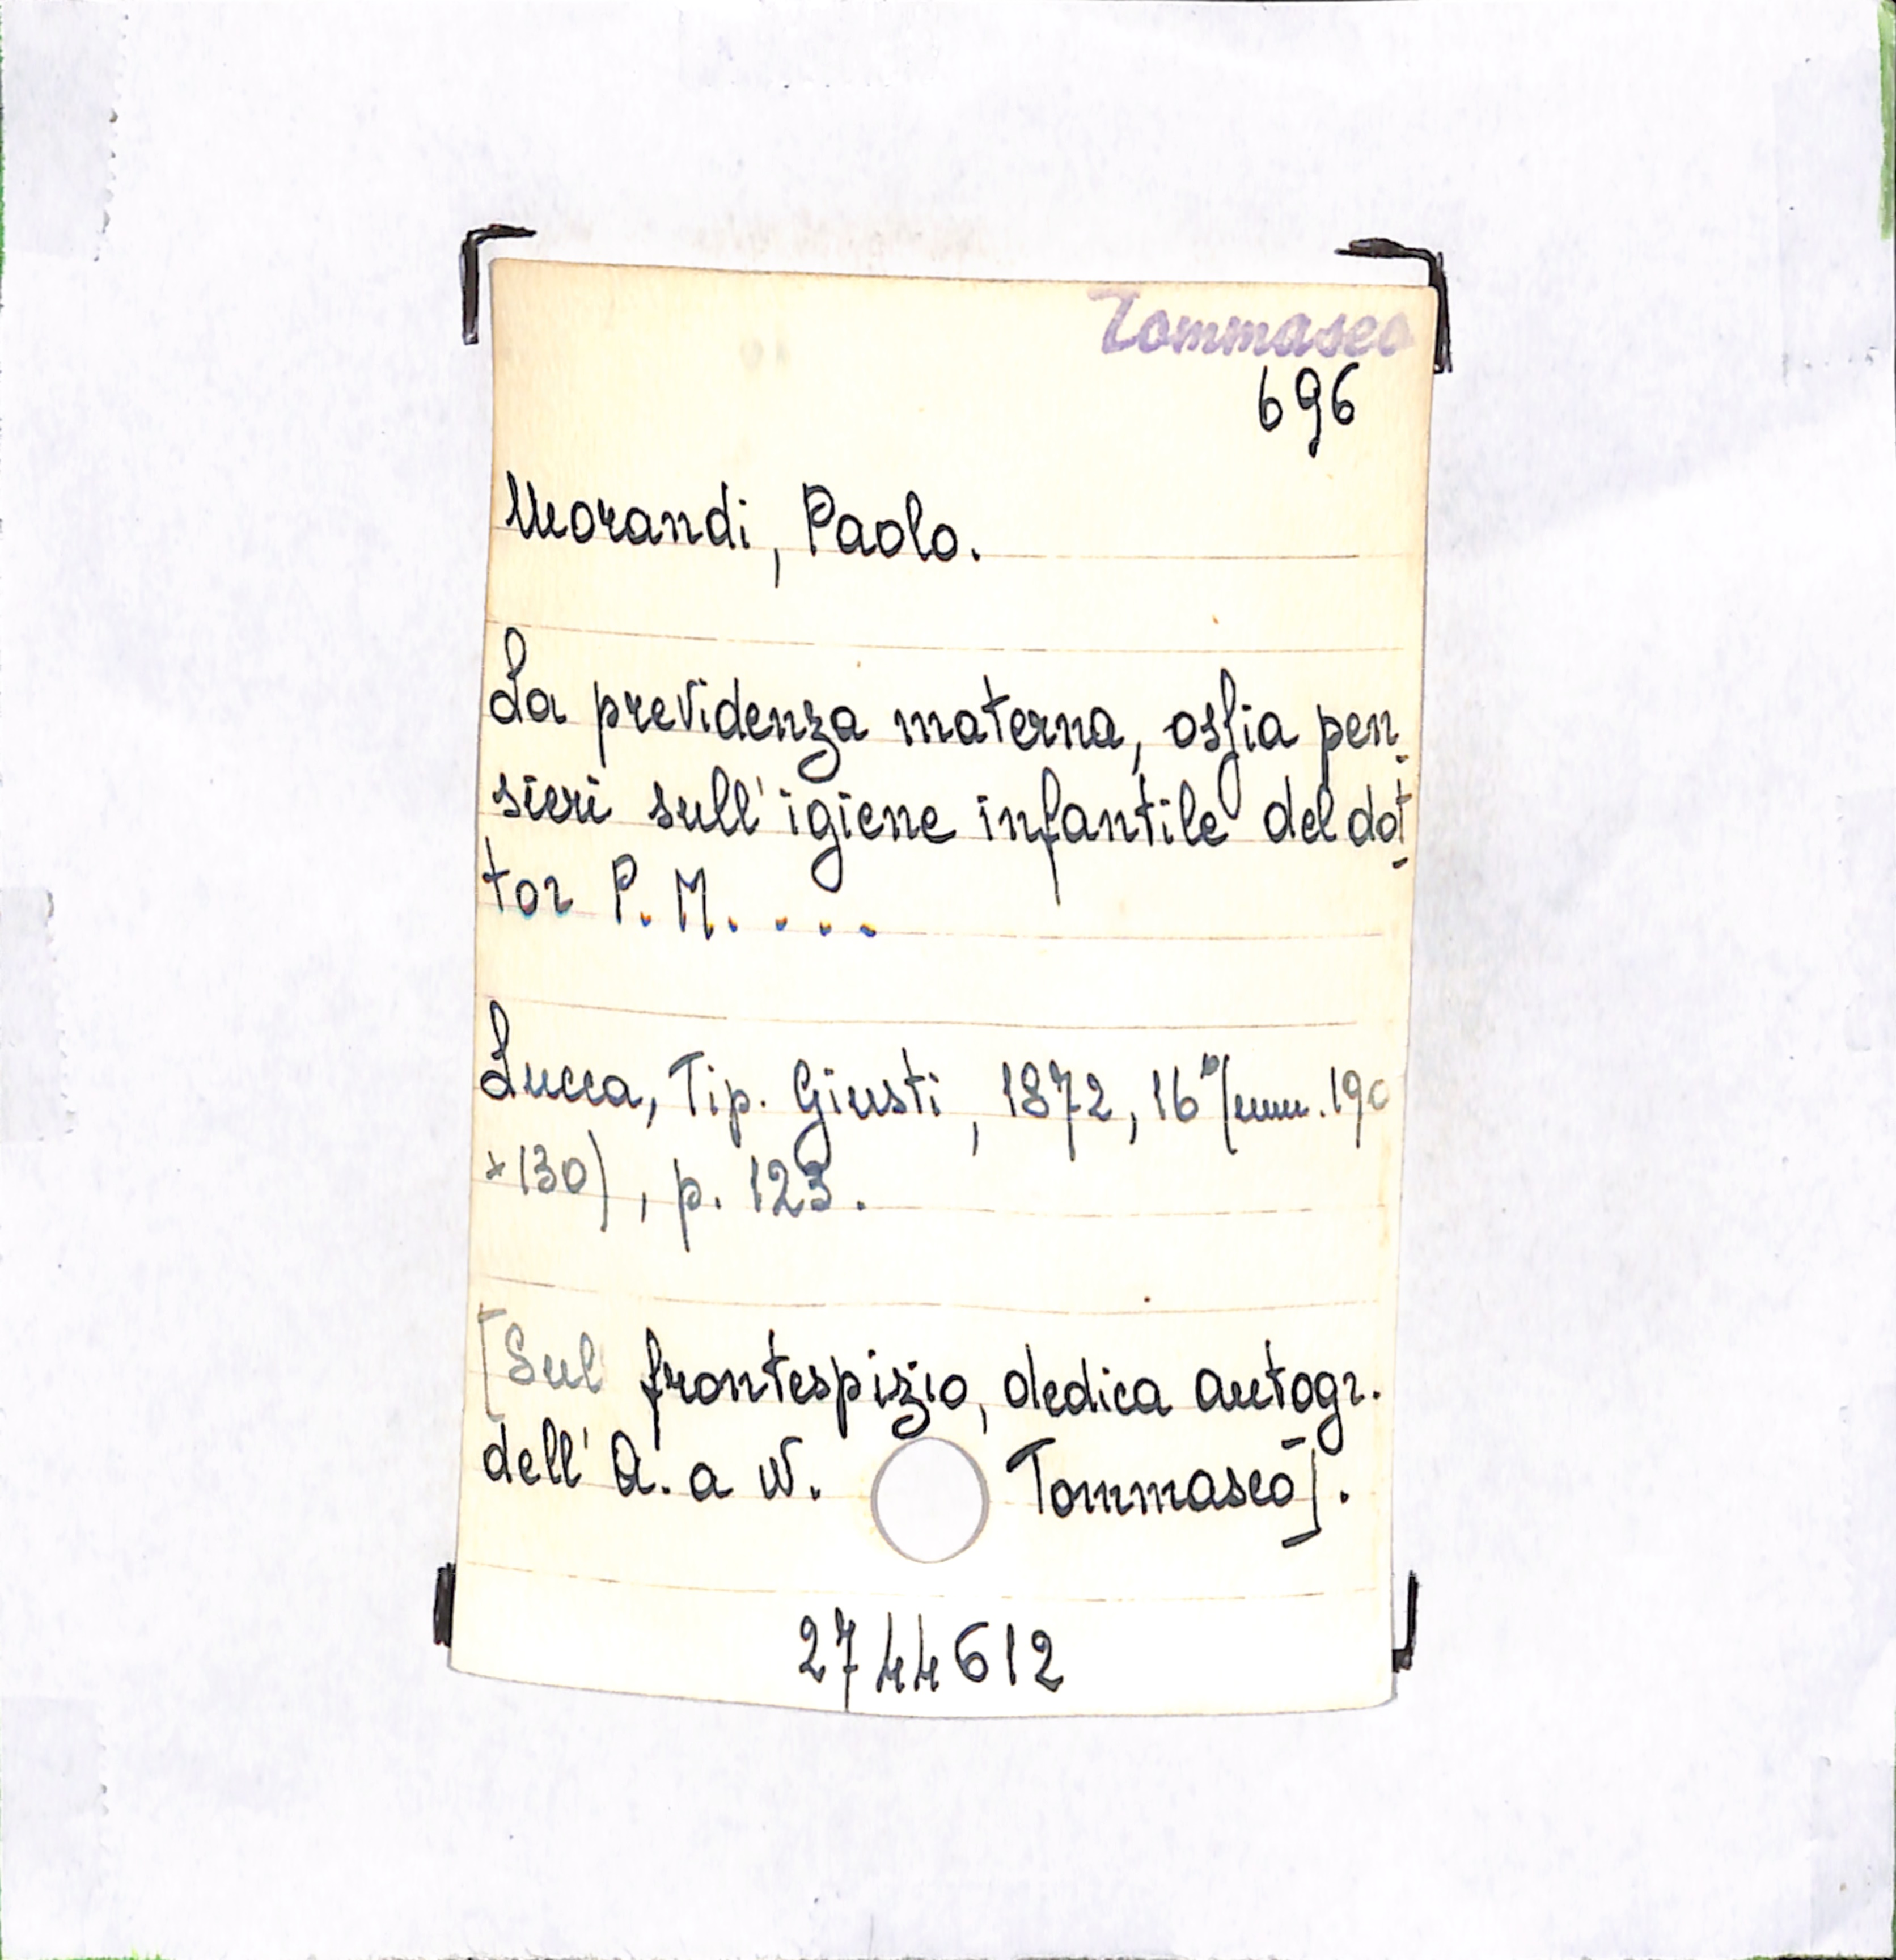 Tommaseo
696
Morandi, Paolo.
La previdenza materna, ossia pen-
sieri sull'igiene infantile del dot-
tor P. M. . . .
Lucca, Tip. Giusti, 1872, 16° (mm. 190
×130), p. 123.
[Sul frontespizio, dedica autogr.
dell'A. a N. Tommaseo].
2744612